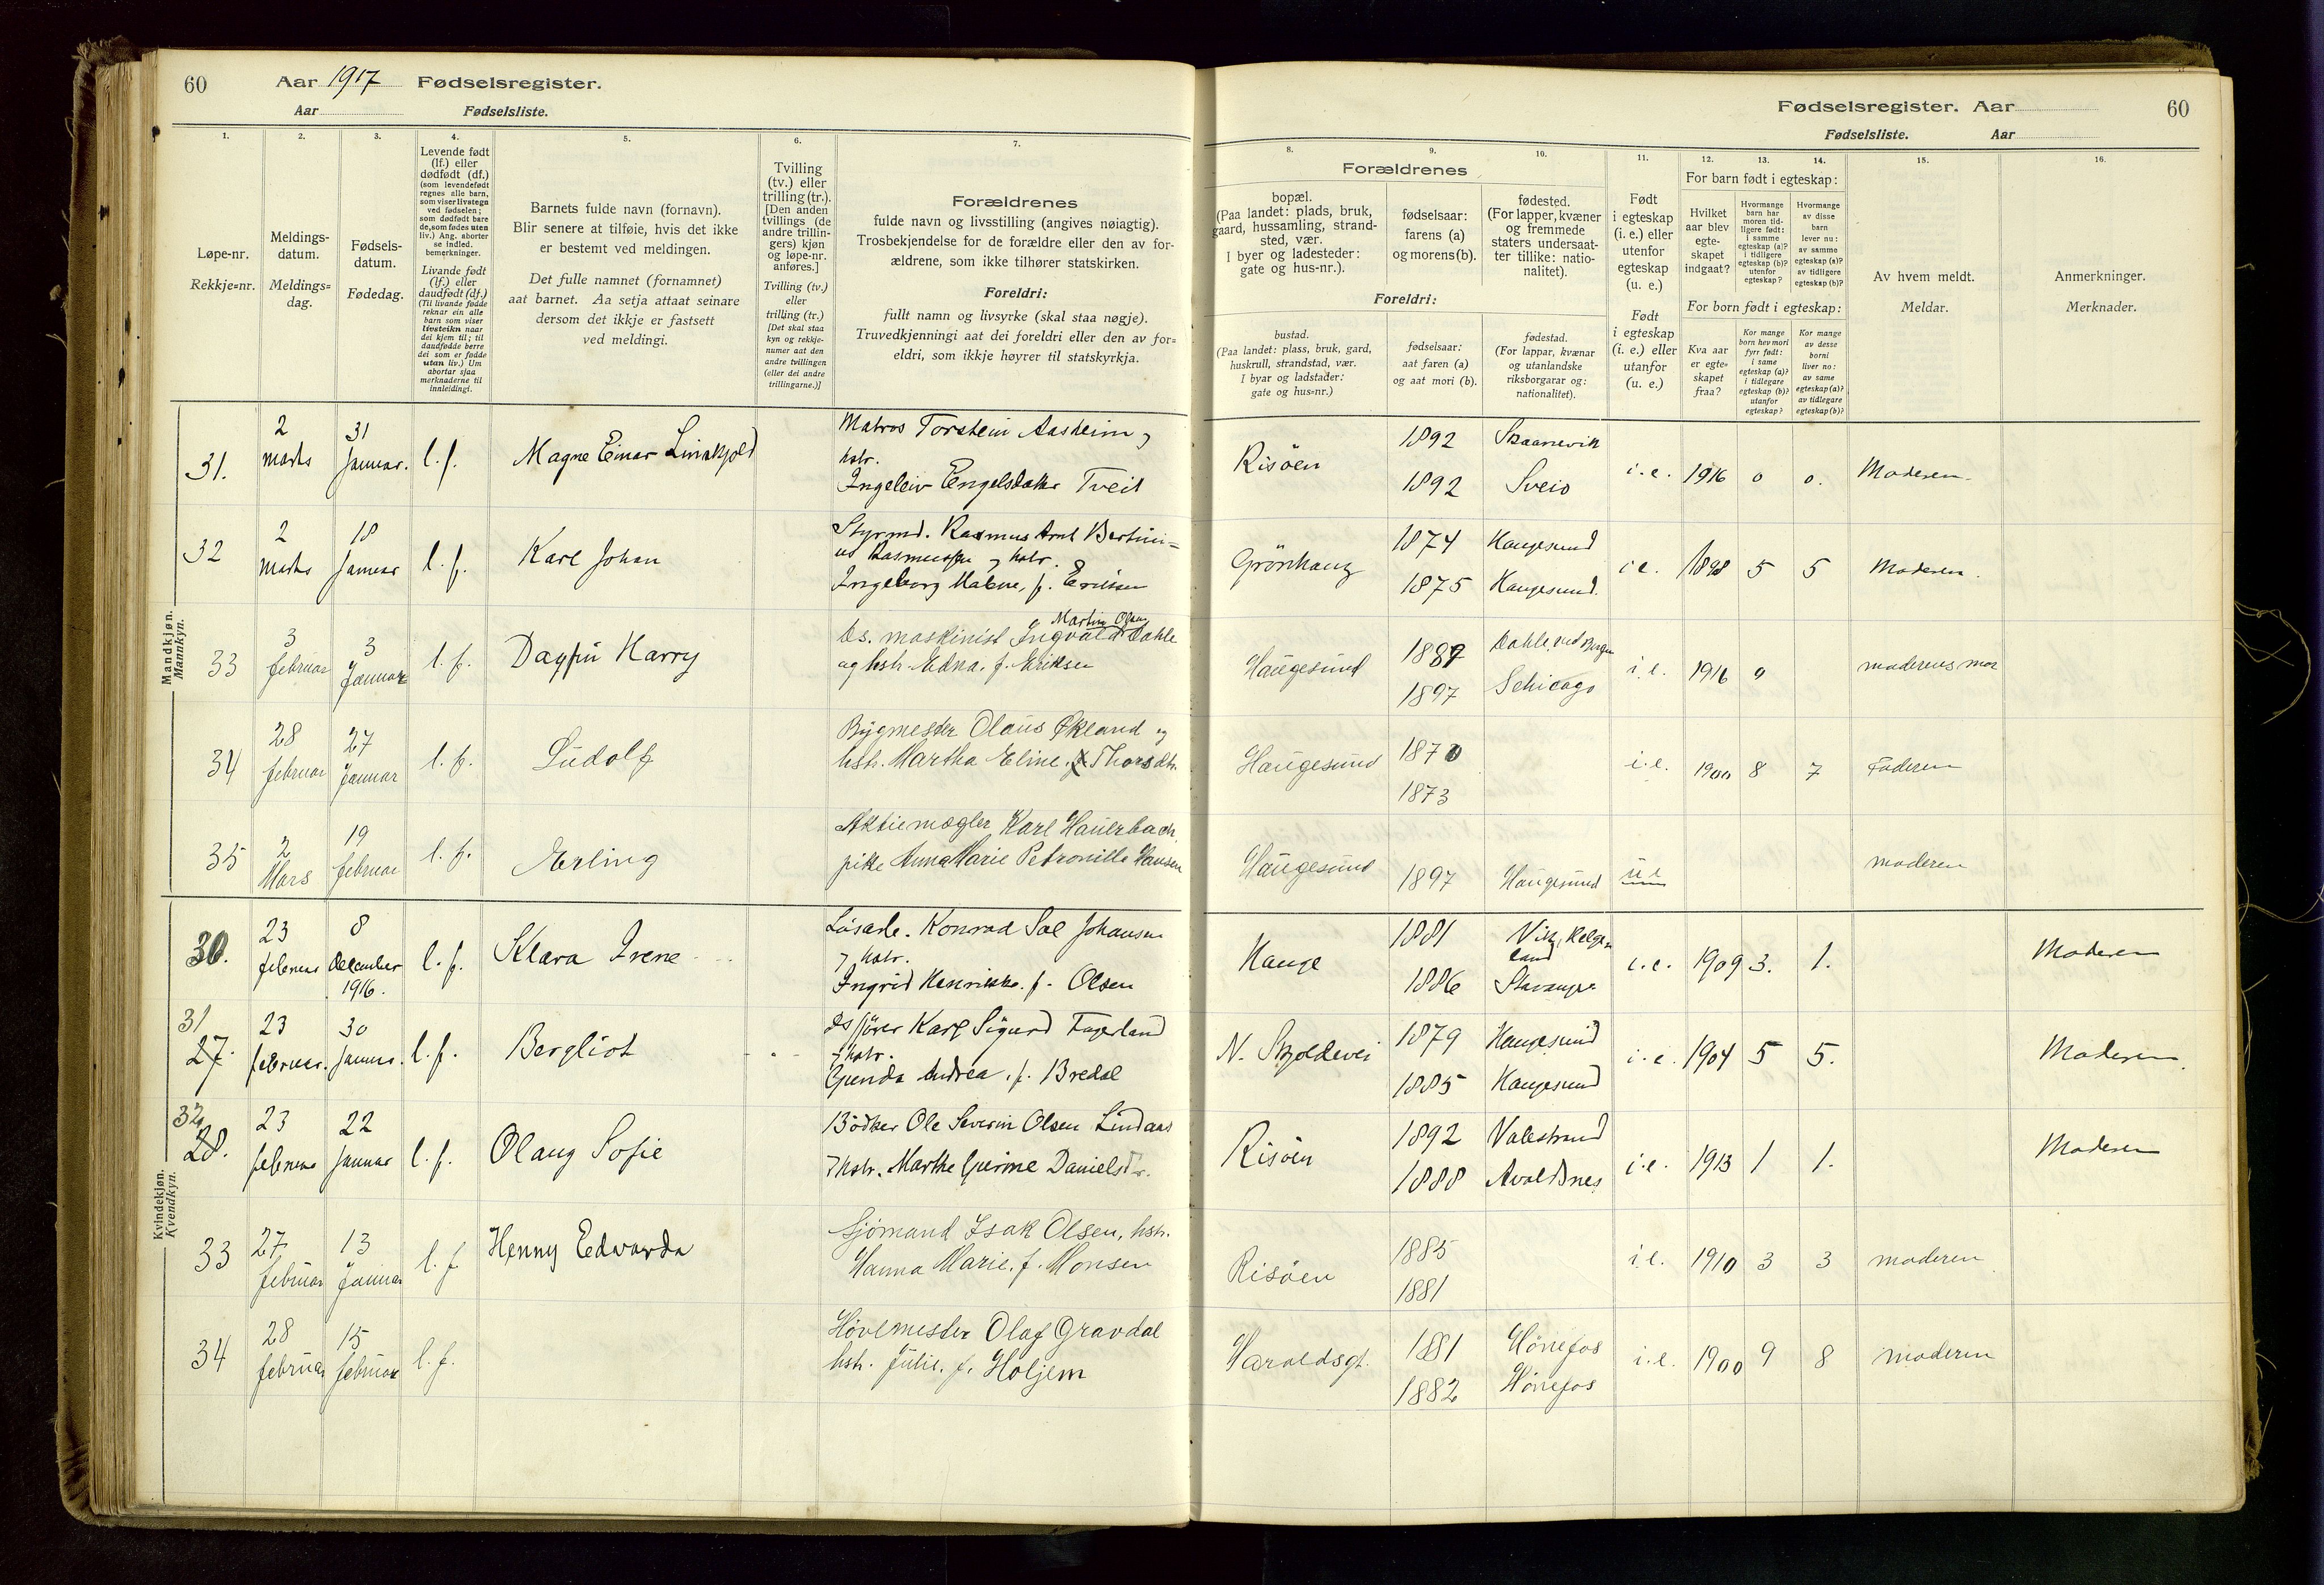 60 Aar 1917 Fødselsregister.
Aar Fødselsliste.
1. 2. 3. 4. 5. 6. 7.
Løpe-nr.
Rekkje-nr.
Meldings-
datum.
Meldings-
dag.
Fødsels-
datum.
Fødedag.
Levende født
(lf.) eller
dødfødt (df.)
(som levendefødt
regnes alle barn,
som viser livstegn
ved fødselen;
som dødfødt bare
de, som fødes uten
liv.) Ang. aborter
se indled.
bemerkninger.
Livande født
(lf.) eller
daudfødt (df.)
(Til livande fødde
reknar ein alle
barn som viser
livsteikn naar
dei kjem til; til
daudfødde berre
dei som er fødde
utan liv.) Um
abortar sjaa
merknaderne til
innleidingi.
Barnets fulde navn (fornavn).
Blir senere at tilføie, hvis det ikke
er bestemt ved meldingen.
Det fulle namnet (fornamnet)
aat barnet. Aa setja attaat seinare
dersom det ikkje er fastsett
ved meldingi.
Tvilling
(tv.) eller
trilling (tr.).
[Den anden
tvillings (de
andre trillin-
gers) kjøn
og løpe-nr.
anføres.]
Tvilling (tv.)
eller
trilling (tr.)
[Det skal staa
kyn og rekkje-
numer aat den
andre tvillingen
(eller dei andre
trillingarne.)]
Forældrenes
fulde navn og livsstilling (angives nøiagtig).
Trosbekjendelse for de forældre eller den av for-
ældrene, som ikke tilhører statskirken.
Foreldri:
fullt namn og livsyrke (skal staa nøgje).
Truvedkjenningi aat dei foreldri eller den av for-
eldri, som ikkje høyrer til statskyrkja.
Mandkjøn.
Mannkyn.
31. 2 marts 31 Januar. l. f. Magne Einar Matros Torstein Aasheim og
hstr.
Ingeleiv Engelsdatter Tveit
32 2 marts 18 Januar l. f. Karl Johan Styrmd. Rasmus Arnt Bertini=
us Rasmussen og hstr.
Ingeborg Malene, f. Eriksen
33 3 februar 3 Januar l. f. Dagfin Harry Ds. maskinist Ingvald Martin Olsen Dahle
og hstr. Edna. f. Eriksen
34 28 februar 27 Januar l. f. Ludolf Bygmester Olaus Økland og
hstr. Martha Eline. Thorsdtr
35 2 Mars 19 februar l. f. Erling Aktiemægler Karl Hauerbach,
pike Anna Marie Petronille Hansen
Kvindekjøn.
Kvendkyn.
30. 23 februar 8 december 1916. l. f. Klara Irene Løsarb. Konrad Sol Johansen
og hstr.
Ingrid Henrikke. f. Olsen
31 27. 23 februar. 30 Januar. l. f. Bergliot Karl Sigurd Fagerland
og hstr.
Gunda Andrea, f. Bredal
32 28. 23 februar 22 Januar l. f. Olaug Sofie Bödker Ole Severin Olsen Lindaas
og hstr. Marthe Gurine Danielsdtr.
33 27 februar 13 Januar l. f. Henny Edvarda Sjömand Isak Olsen, hstr.
Hanna Marie. f. Monsen
34 28 februar 15 februar l. f. Hövlmester Olaf Gravdal
hstr. Julie. f. Holjem
Fødselsregister. Aar 60
Fødselsliste. Aar
8. 9. 10. 11. 12. 13. 14. 15. 16.
Forældrenes
bopæl.
(Paa landet: plads, bruk,
gaard, hussamling, strand-
sted, vær.
I byer og ladesteder:
gate og hus-nr.).
fødselsaar:
farens (a)
og morens (b).
fødested.
(For lapper, kvæner
og fremmede
staters undersaat-
ter tillike: natio-
nalitet).
Foreldri:
bustad.
(Paa landet: plass, bruk, gard,
huskrull, strandstad, vær.
I byar og ladstader:
gate og hus-nr.)
fødselsaar:
aat faren (a)
og aat mori (b).
fødestad.
(For lappar, kvænar
og utanlandske
riksborgarar og:
nationalitet).
Født
i egteskap
(i. e.) eller
utenfor
egteskap
(u. e.)
Født
i egteskap
(i. e.) eller
utanfor
(u. e.)
For barn født i egteskap:
Hvilket
aar blev
egte-
skapet
indgaat?
Hvormange
barn har
moren tid-
ligere født:
i samme
egteskap (a)?
i tidligere
egteskap (b)?
utenfor
egteskap?
Hvormange
av disse
barn
lever nu:
av samme
egteskap (a)?
av tidligere
egteskap (b)?
For born født i egteskap:
Kva aar
er egte-
skapet
fraa?
Kor mange
born hev mori
fyrr født:
i same
egteskap (a)?
i tidlegare
egteskap (b)?
utanfor
egteskap?
Kor mange
av desse
borni
liver no:
av same
egteskap (a)?
av tidlegare
egteskap (b)?
Av hvem meldt.
Meldar.
Anmerkninger.
Merknader.
Risöen 1892 Skaanevik
1892 Sveio i. e. 1916 0 0. Moderen.
Grönhaug 1874 Haugesund
1875 Haugesund. i e. 1898 5 5 Moderen.
Haugesund 1889 Dahle, ved Bergen
1897 Schicago i. e. 1916 0 moderens mor
Haugesund 1870
1873 i. e. 1900 8 7 Faderen
Haugesund 1897 Haugesund u e moderen
Hauge 1881 Vik, Helge
land
1886 Stavanger i. e. 1909 3. 1. Moderen
N. Skjoldevei 1879 Haugesund
1885 Haugesund i. e. 1904 5 5. Moderen
Risöen 1892 Valestrand
1888 Avaldsnes i. e. 1913 1 1. Moderen
Risöen 1885
1881 i. e. 1910 3 3 moderen
Haraldsgt. 1881 Hönefos
1882 Hönefos i. e. 1900 9 8 moderen